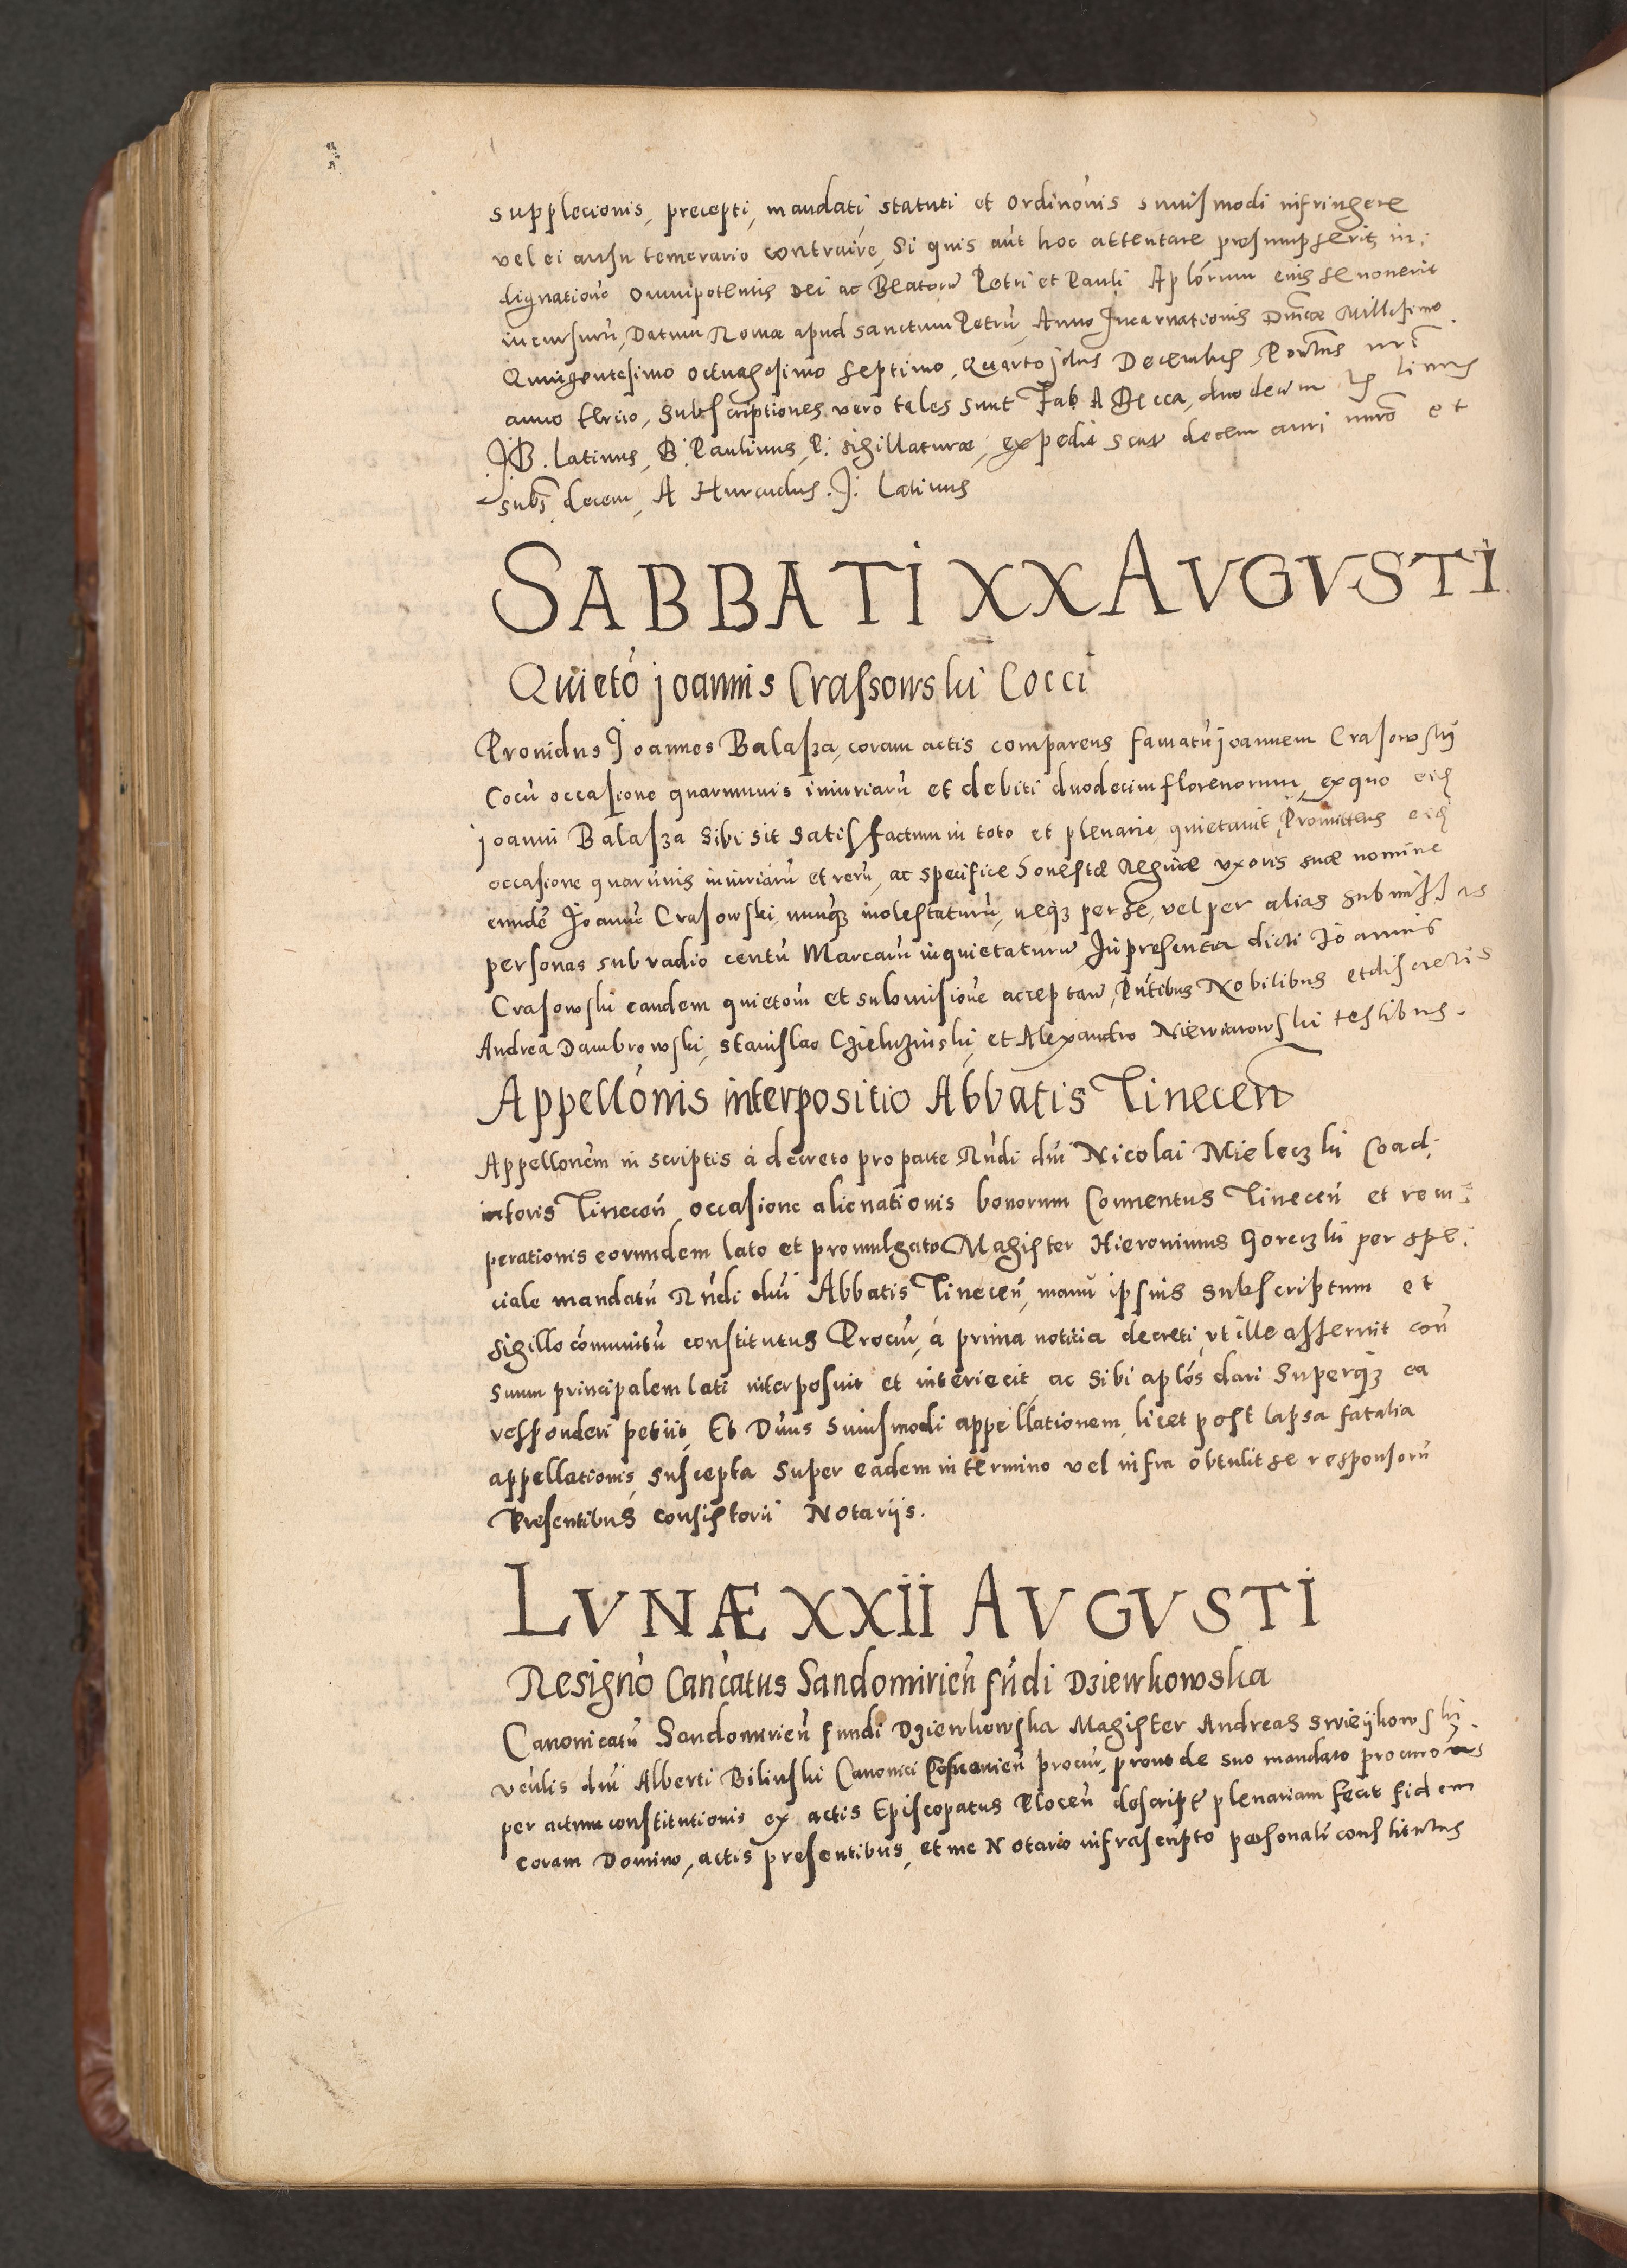 supplecionis, precepti, mandati statuti et ordinonis huiusmodi infringere
vel ei ausu temerario contraire, Si quis aut hoc attentare presumpserit in:
dignatione omnipotentis Dei ac Beatorū Petri et Pauli Aplorum eius se nouerit
incursurū, Datum Romæ apud sanctum Petrū, Anno Incarnationis Dnicæ Millesimo
Quingentesimo octuagesimo septimo, Quarto jdus Decembris Pontus nri
anno tercio, Subscriptiones vero tales sunt Fab. A Becca, duodecim linus
JB. Latinus, B. Paulinus, P. sigillaturæ, expedit scut decem auri nuro et
subs decem, A Hurcudus. J. Latinus
SABBATI XX AVGVSTI
Quieto joannis Crassowski Cocci
Prouidus Joannes Balasza, coram actis comparens famatū joannem Crasowskij
Cocū occasione quarumuis iniuriarū et debiti duodecim florenorum, ex quo eid
joanni Balasza sibi sit satisfactum in toto et plenarie, quietauit, Promittens eid
occasione quarūuis iniuriarū et rerū, ac specifice honestæ Reginæ vxoris suæ nomine
eundē Joannē Crasowski, nunqz molestaturū, neqz per se, vel per alias submissas
personas sub vadio centū Marcarū inquietaturū, In presentia dicti Joannis
Crasowski eandem quietom et submisionē acceptan, Pntibus Nobilibus et discretis
Andrea Dambrowski, Stanislao Czieluzinski, et Alexandro Niewiarowski testibus.
Appellonis interpositio Abbatis Tinecen
Appellonem in scriptis á decreto pro parte Rndi dni Nicolai Mieleczki Coad:
iutoris Tinecen, occasione alienationis bonorum Conuentus Tinecen et recu:
perationis eorundem lato et promulgato Magister Hieronimus Goreczki per spe:
ciale mandatū Rndi dni Abbatis Tinecen, manu ipsius subscriptum et
sigillo comunitū constitutus Procur, á prima notitia decreti, vt ille asseruit con
suum principalem lati interposuit et interiecit, ac sibi aplos dari Superqz ea
responderi petiit, Et Dnus huiusmodi appellationem, licet post lapsa fatalia
appellationis, suscepta super eadem in termino vel infra obtulit se responsorū
Presentibus consistorii Notarijs.
LVNÆ XXII AVGVSTI
Resigno Cancatus Sandomirien fundi Dziewkowska
Canonicatū Sandomirien fundi Dziewkowska Magister Andreas Swieijkowski
venlis dni Alberti Bilinski Canonici Posnanien procur, prout de suo mandato procurois
per actum constitutionis ex actis Episcopatus Plocen descript plenariam fecit fidem
coram Domino, actis presentibus, et me Notario infrascripto personali constitutus